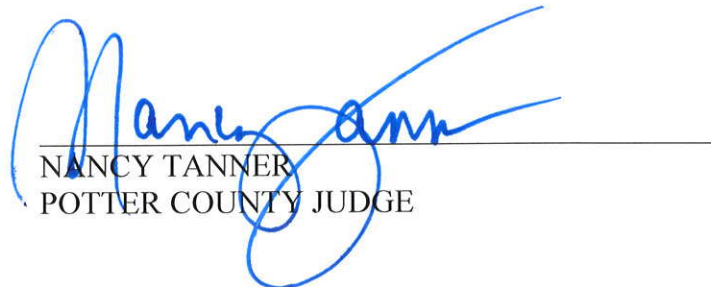 Nancy Tanner
NANCY TANNER
POTTER COUNTY JUDGE